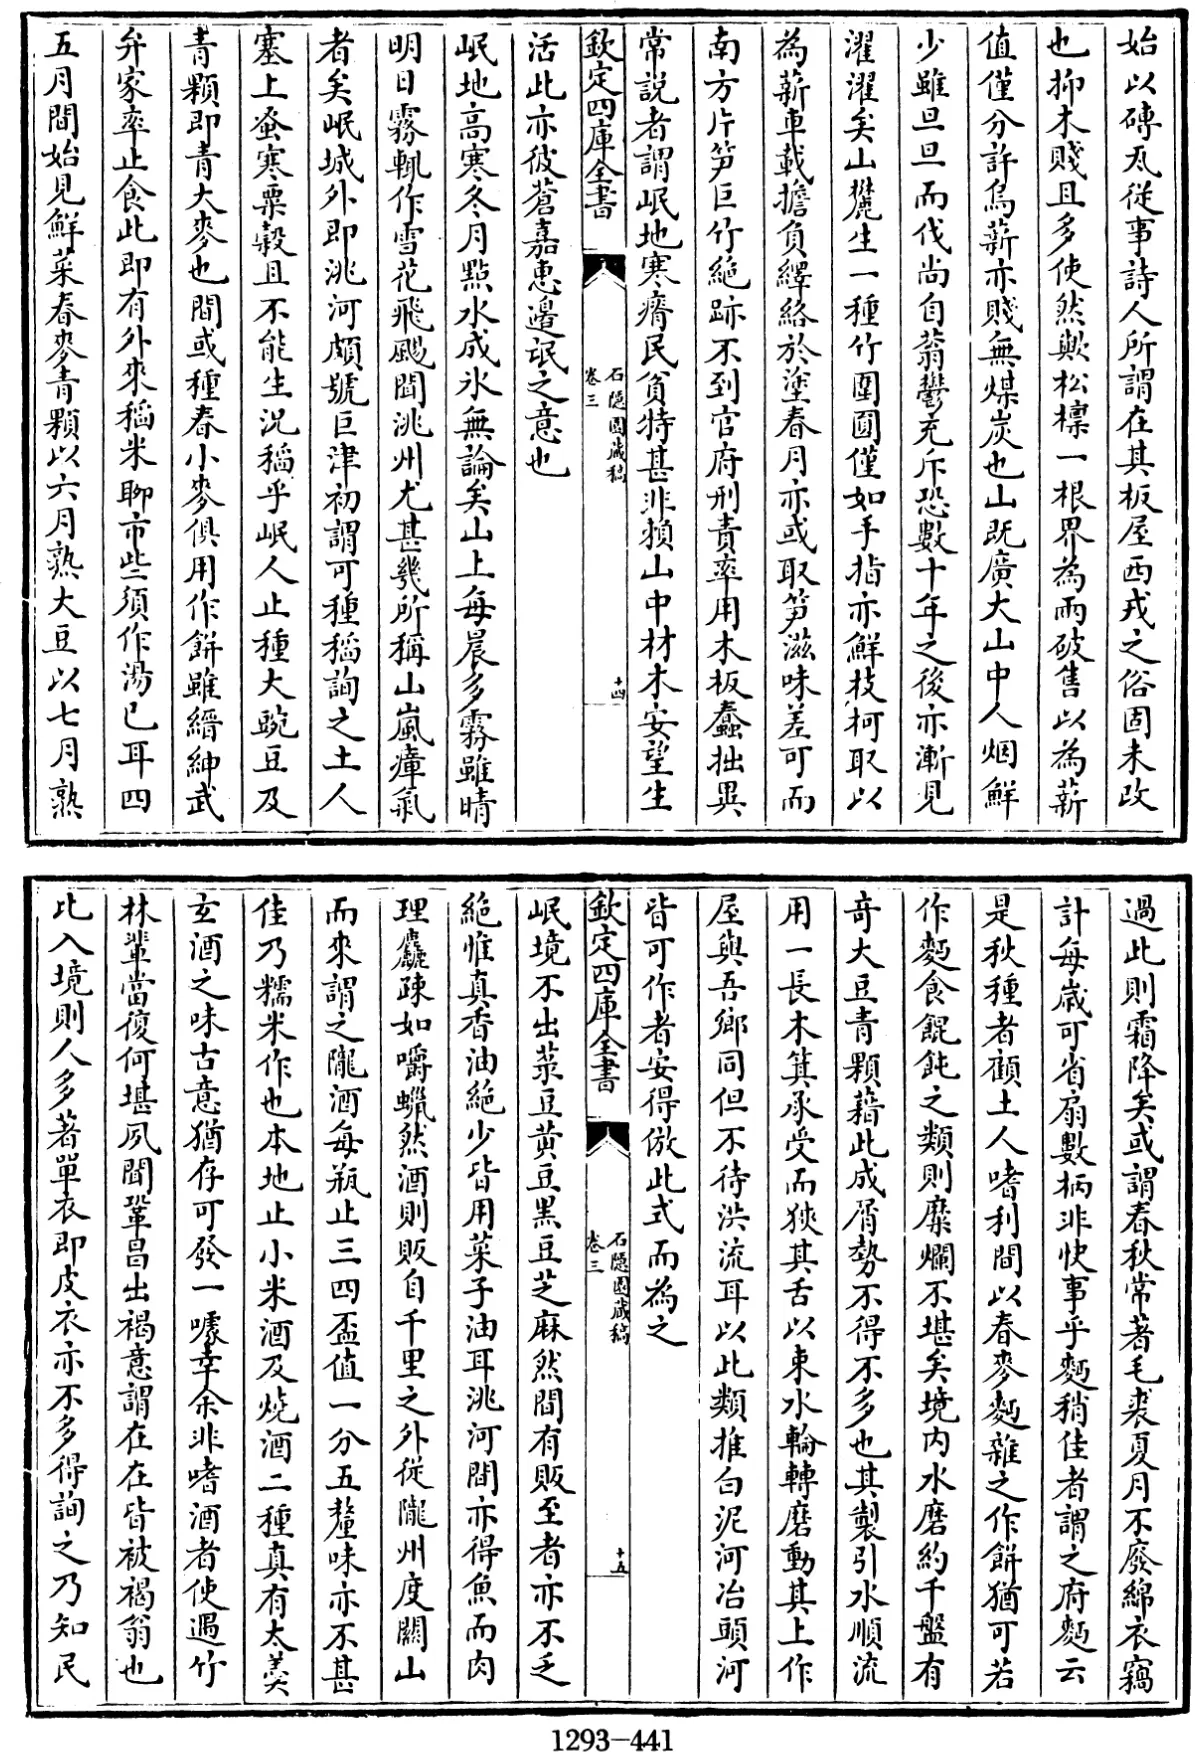 始以磚瓦從事詩人所謂在其板屋西戎之俗固未改
也抑木賤且多使然歟松檁一根界為兩破售以為薪
值僅分許烏薪亦賤無煤炭也山既廣大山中人烟鮮
少雖旦旦而伐尚自蓊鬱充斥恐數十年之後亦漸見
濯濯矣山麓生一種竹圍圓僅如手指亦鮮枝柯取以
為薪車載擔負繹絡於塗春月亦或取笋滋味差可而
南方片笋巨竹絶跡不到官府刑責率用木板蠢拙異
常説者謂岷地寒瘠民貧特甚非頼山中材木安望生
欽定四庫全書
石隠園藏稿
卷三
十四
活此亦彼蒼嘉恵邉氓之意也
岷地高寒冬月㸃水成氷無論矣山上每晨多霧雖晴
明日霧輒作雪花飛颺聞洮州尤甚㡬所稱山嵐瘴氣
者矣岷城外即洮河頗號巨津初謂可種稻詢之土人
塞上蚤寒粟穀且不能生況稻乎岷人止種大豌豆及
青顆即青大麥也間或種春小麥俱用作餅雖縉紳武
弁家率止食此即有外來稻米聊市些須作湯已耳四
五月間始見鮮菜春麥青顆以六月熟大豆以七月熟
過此則霜降矣或謂春秋常著毛裘夏月不廢綿衣竊
計每歳可省扇數柄非快事乎麪稍佳者謂之府麪云
是秋種者顧土人嗜利間以春麥麪雜之作餅猶可若
作麪食餛飩之類則糜爛不堪矣境内水磨約千盤有
竒大豆青顆藉此成屑勢不得不多也其製引水順流
用一長木箕承受而狹其舌以束水輪轉磨動其上作
屋與吾鄉同但不待洪流耳以此類推白泥河冶頭河
皆可作者安得倣此式而為之
欽定四庫全書
石隠園藏稿
卷三
十五
岷境不出菉豆黄豆黒豆芝麻然間有販至者亦不乏
絶惟真香油絶少皆用菜子油耳洮河間亦得魚而肉
理麤疎如嚼蠟然酒則販自千里之外從隴州度關山
而來謂之隴酒每瓶止三四盃值一分五釐味亦不甚
佳乃糯米作也本地止小米酒及燒酒二種真有太羮
玄酒之味古意猶存可發一噱幸余非嗜酒者使遇竹
林輩當復何堪夙聞鞏昌出褐意謂在在皆被褐翁也
比入境則人多著單衣即皮衣亦不多得詢之乃知民
1293-441